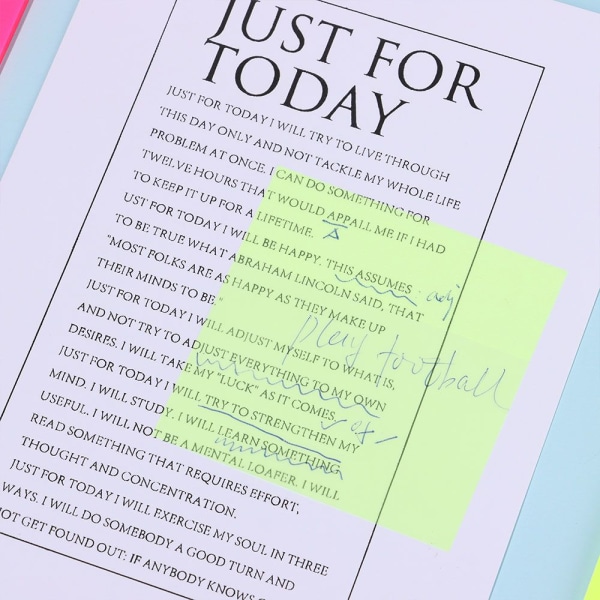 JUST FOR
TODAY
JUST FOR TODAY I WILL TRY TO LIVE THROUGH
THIS DAY ONLY AND NOT TACKLE MY WHOLE LIFE
PROBLEM AT ONCE. I CAN DO SOMETHING FOR
TWELVE HOURS THAT WOULD APPALL ME IF I HAD
TO KEEP IT UP FOR A LIFETIME.
UST FOR TODAY I WILL BE HAPPY. THIS ASSUMES adj
TO BE TRUE WHAT ABRAHAM LINCOLN SAID, THAT
"MOST FOLKS ARE AS HAPPY AS THEY MAKE UP
THEIR MINDS TO BE."
play football
JUST FOR TODAY I WILL ADJUST MYSELF TO WHAT IS,
AND NOT TRY TO ADJUST EVERYTHING TO MY OWN
DESIRES. I WILL TAKE MY "LUCK" AS IT COMES.
JUST FOR TODAY I WILL TRY TO STRENGTHEN MY
MIND. I WILL STUDY. I WILL LEARN SOMETHING
USEFUL. I WILL NOT BE A MENTAL LOAFER. I WILL
READ SOMETHING THAT REQUIRES EFFORT,
THOUGHT AND CONCENTRATION.
JUST FOR TODAY I WILL EXERCISE MY SOUL IN THREE
WAYS. I WILL DO SOMEBODY A GOOD TURN AND
NOT GET FOUND OUT: IF ANYBODY KNOWS